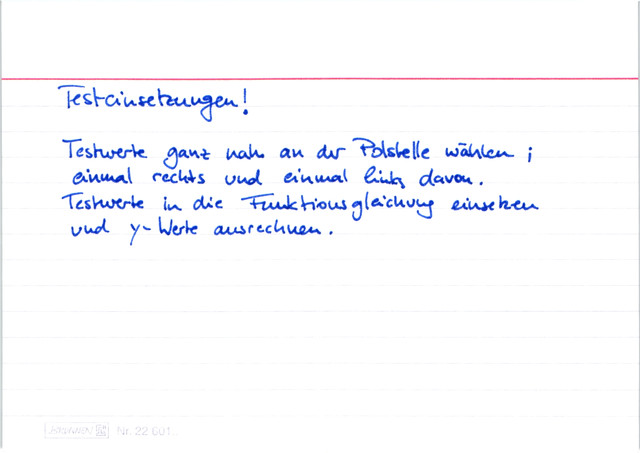 Testeinsetzungen!
Testwerte ganz nah an der Polstelle wählen;
einmal rechts und einmal links davon.
Testwerte in die Funktionsgleichung einsetzen
und y-Werte ausrechnen.
BRUNNEN Nr. 22 601..